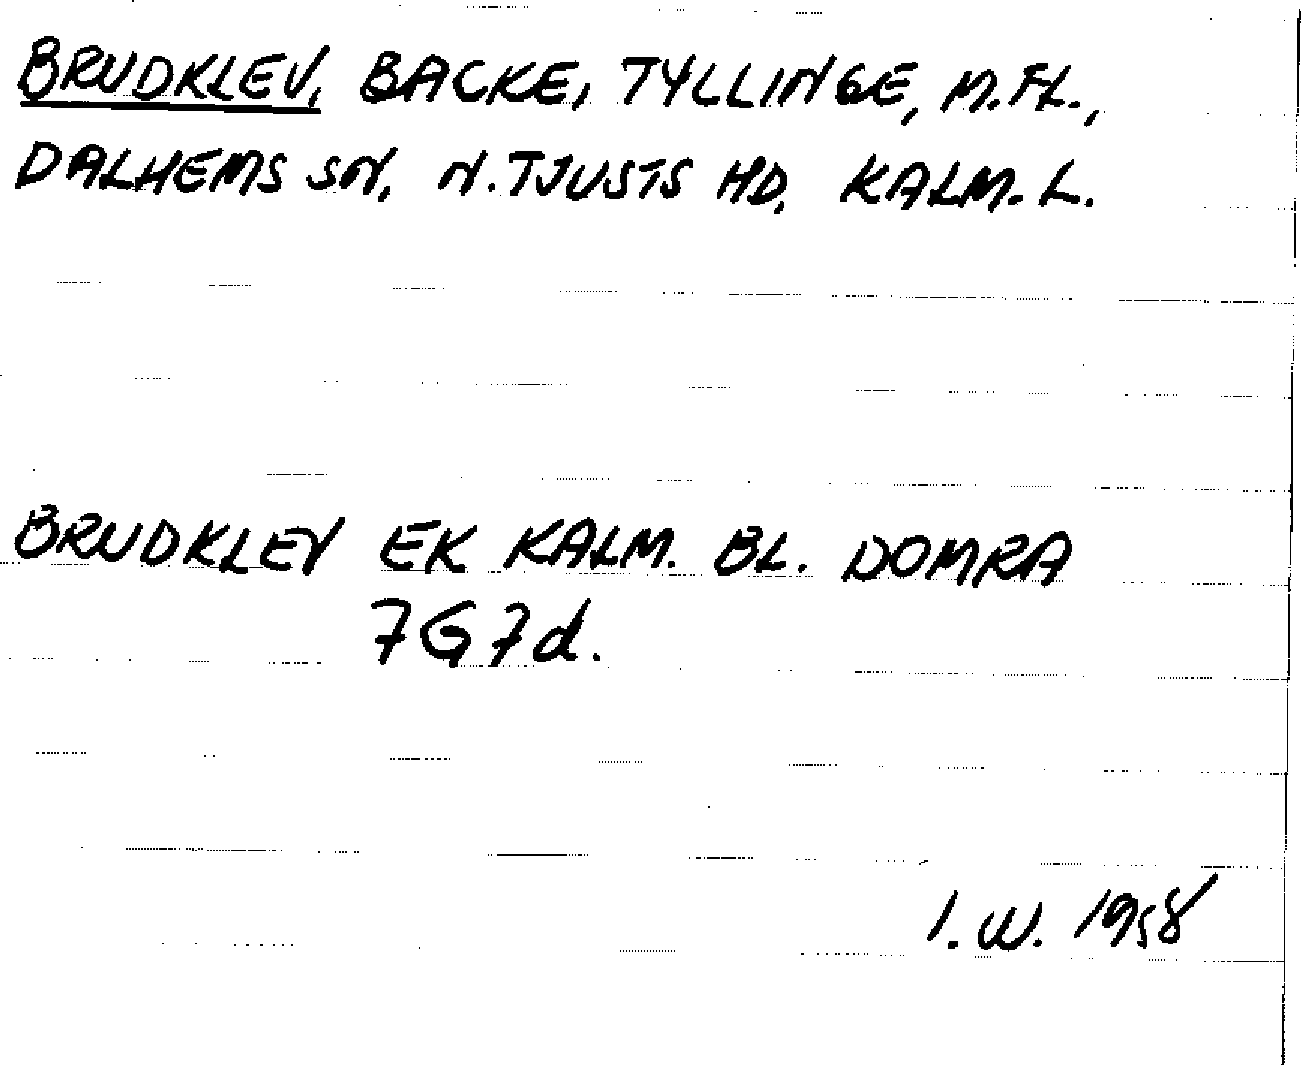 BRUDKLEV, BACKE, TYLLINGE, M.FL.,
DALHEMS SN, N.TJUSTS HD, KALM. L.
BRUDKLEV EK KALM. BL. DOMRA
7G7d.
I.W. 1958